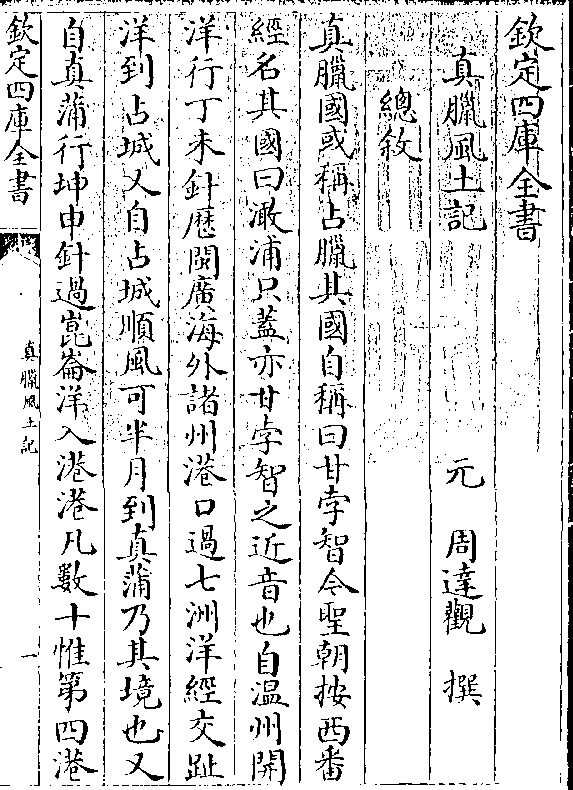 欽定四庫全書
真臘風土記
元 周達觀 撰
總敘
真臘國或稱占臘其國自稱曰甘孛智今聖朝按西番
經名其國曰澉浦只蓋亦甘孛智之近音也自温州開
洋行丁未針歴閩廣海外諸州港口過七洲洋經交趾
洋到占城又自占城順風可半月到真蒲乃其境也又
自真蒲行坤申針過崑崙洋入港港凡數十惟第四港
欽定四庫全書
真臘風土記
一